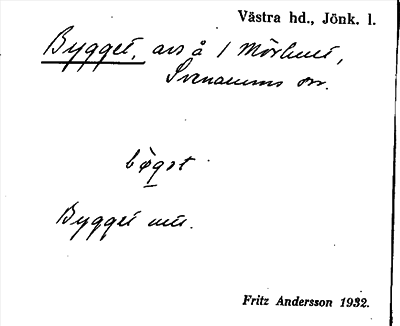 Västra hd., Jönk. l.
Bygget, avs å 1 Mörhult,
Svenarums sn.
bøgət
Bygget mtl.
Fritz Andersson 1932.